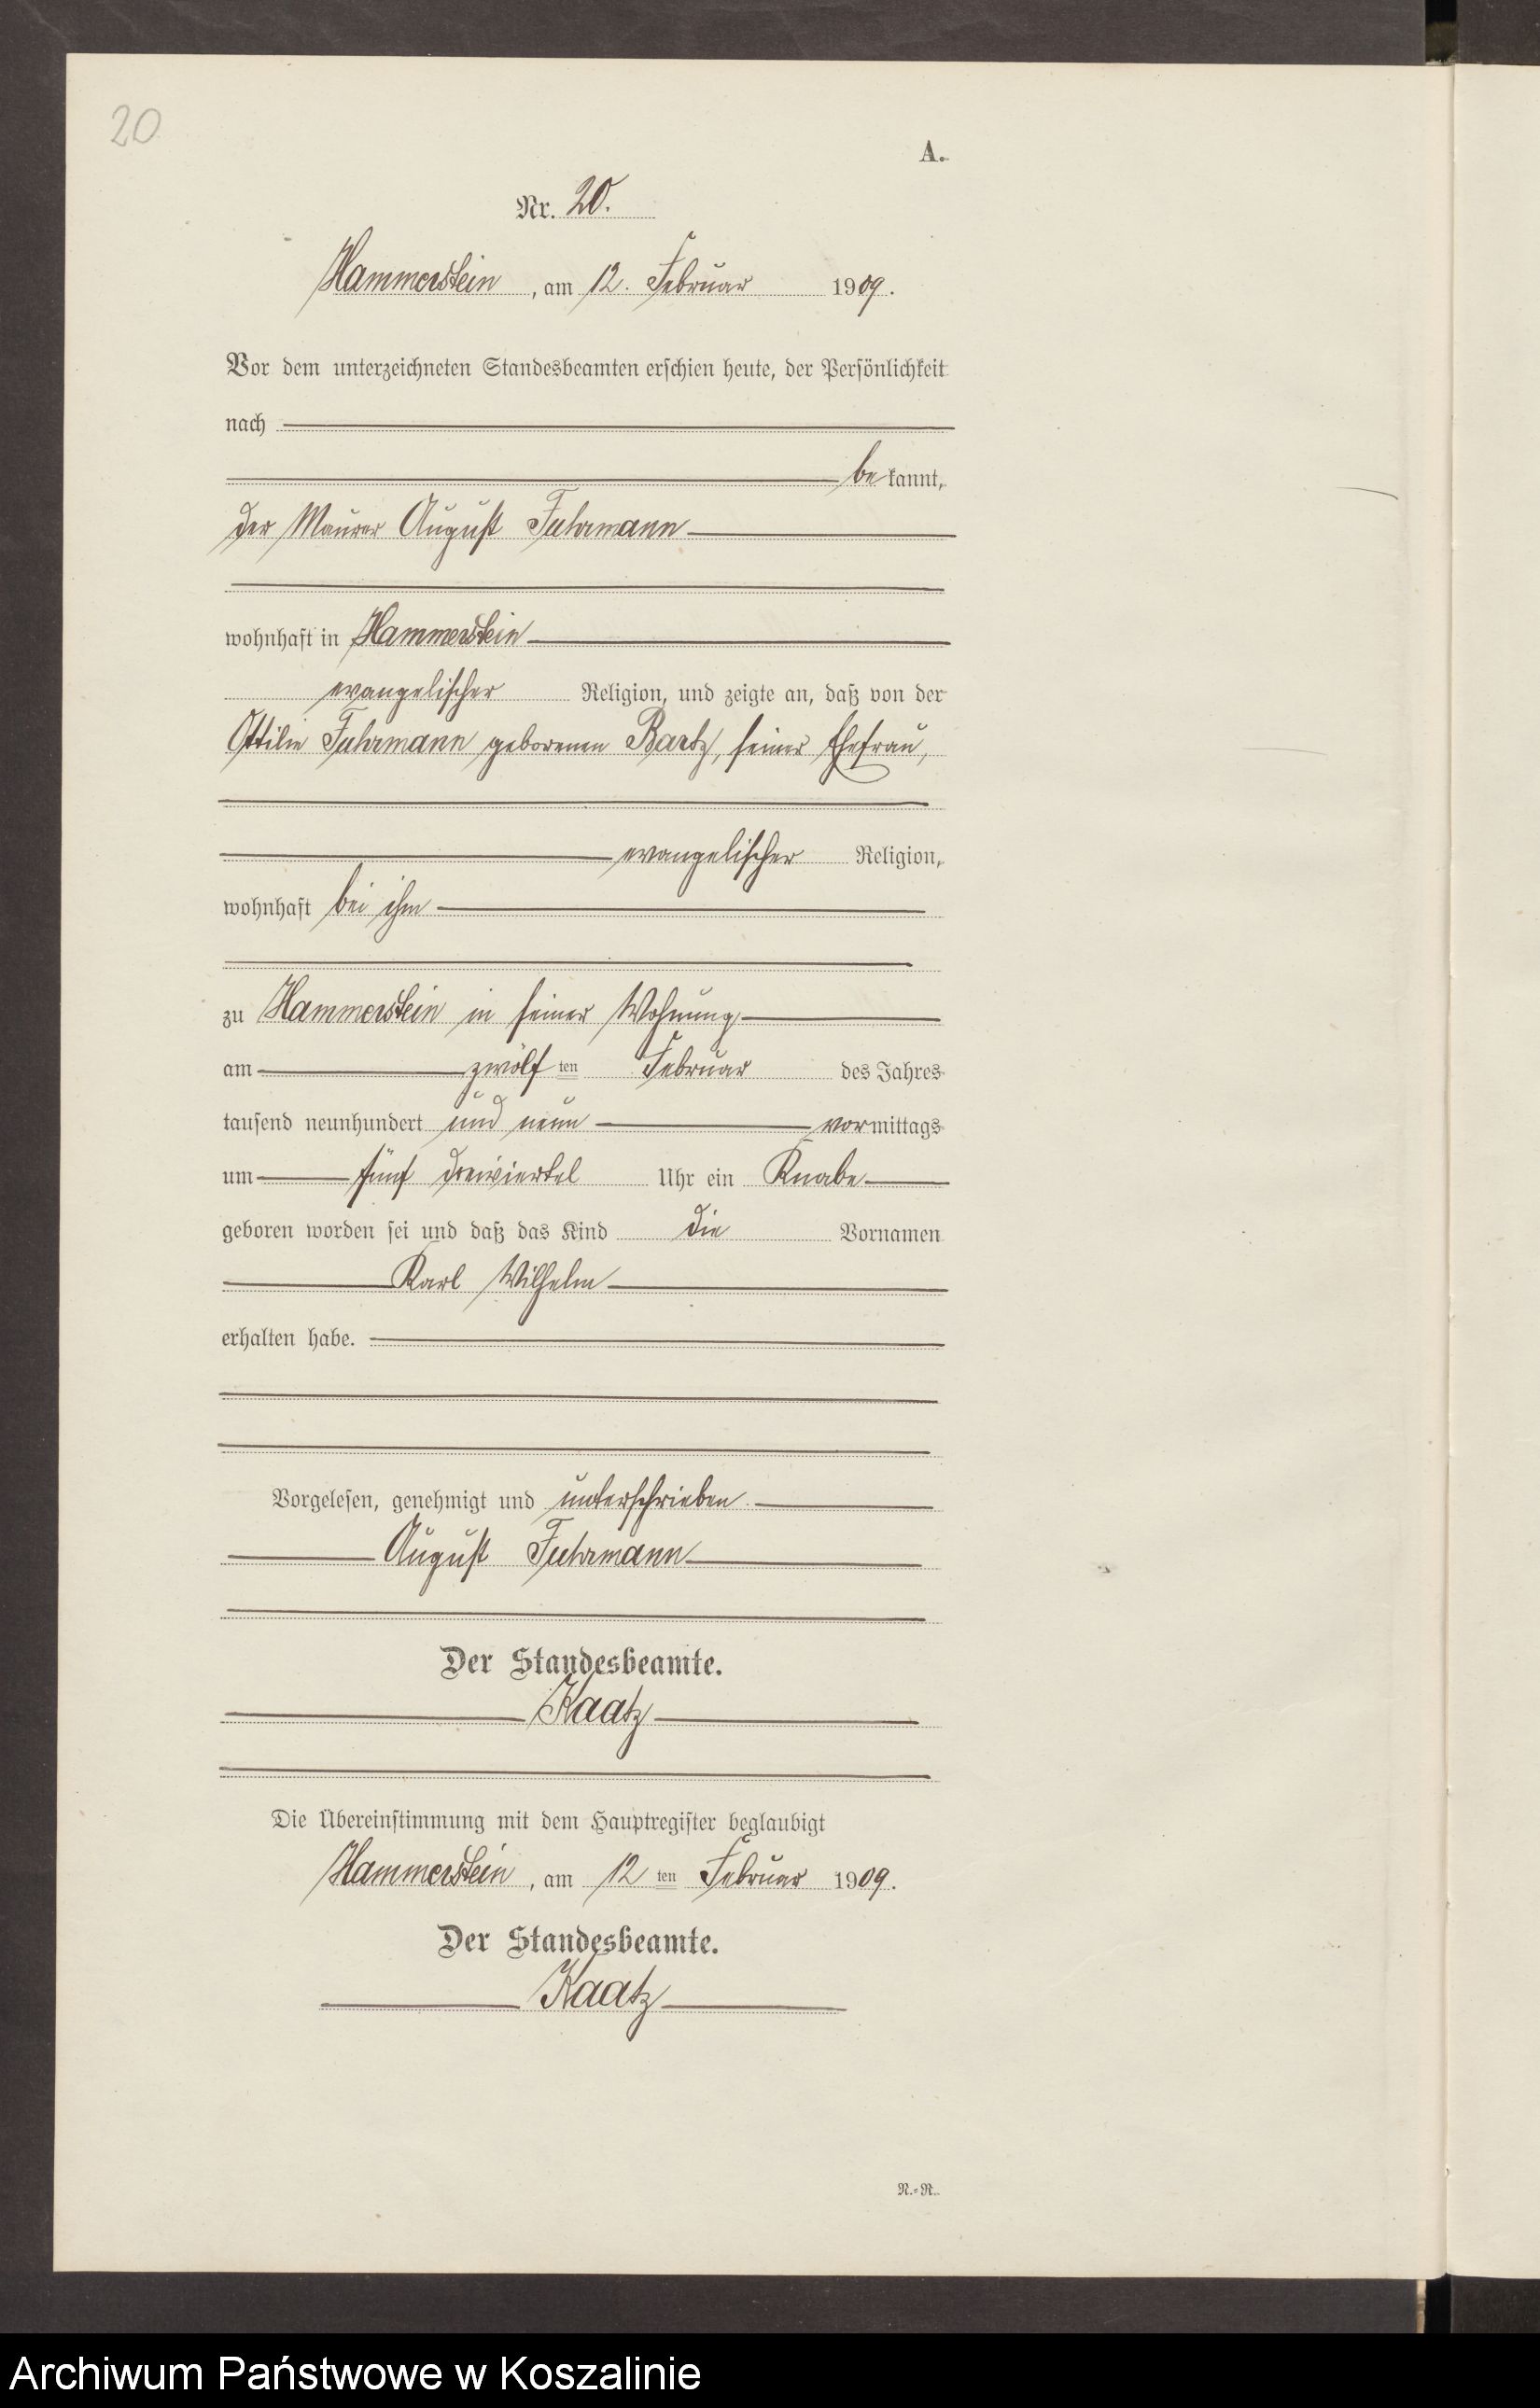 20
A.
Nr. 20.
Hammerstein, am 12. Februar 1909.
Vor dem unterzeichneten Standesbeamten erschien heute, der Persönlichkeit
nach
bekannt,
der Maurer August Fuhrmann
wohnhaft in Hammerstein
evangelischer Religion, und zeigte an, daß von der
Ottilie Fuhrmann geborenen Bartz, seiner Ehefrau,
evangelischer Religion,
wohnhaft bei ihm
zu Hammerstein in seiner Wohnung
am zwölf ten Februar des Jahres
tausend neunhundert und neun vormittags
um fünf dreiviertel Uhr ein Knabe
geboren worden sei und daß das Kind die Vornamen
Karl Wilhelm
erhalten habe.
Vorgelesen, genehmigt und unterschrieben.
August Fuhrmann
Der Standesbeamte.
Kaatz
Die Übereinstimmung mit dem Hauptregister beglaubigt
Hammerstein, am 12 ten Februar 1909.
Der Standesbeamte.
Kaatz
N.=R.
Archiwum Państwowe w Koszalinie